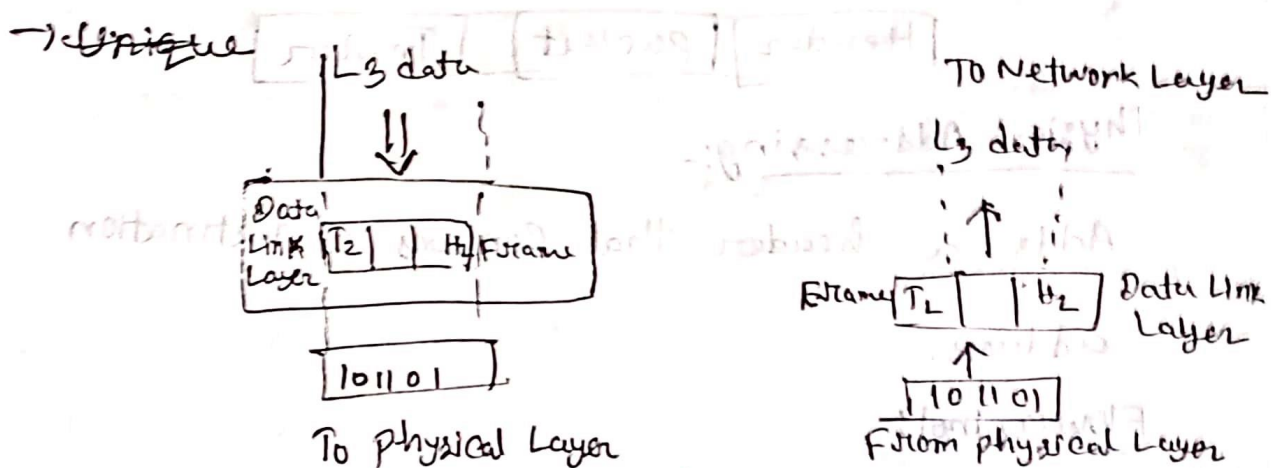 → Unique
L3 data
Data
Link
Layer
T2 H2 Frame
101101
To physical Layer
To Network Layer
L3 data
Frame T2 H2 Data Link
Layer
101101
From physical Layer